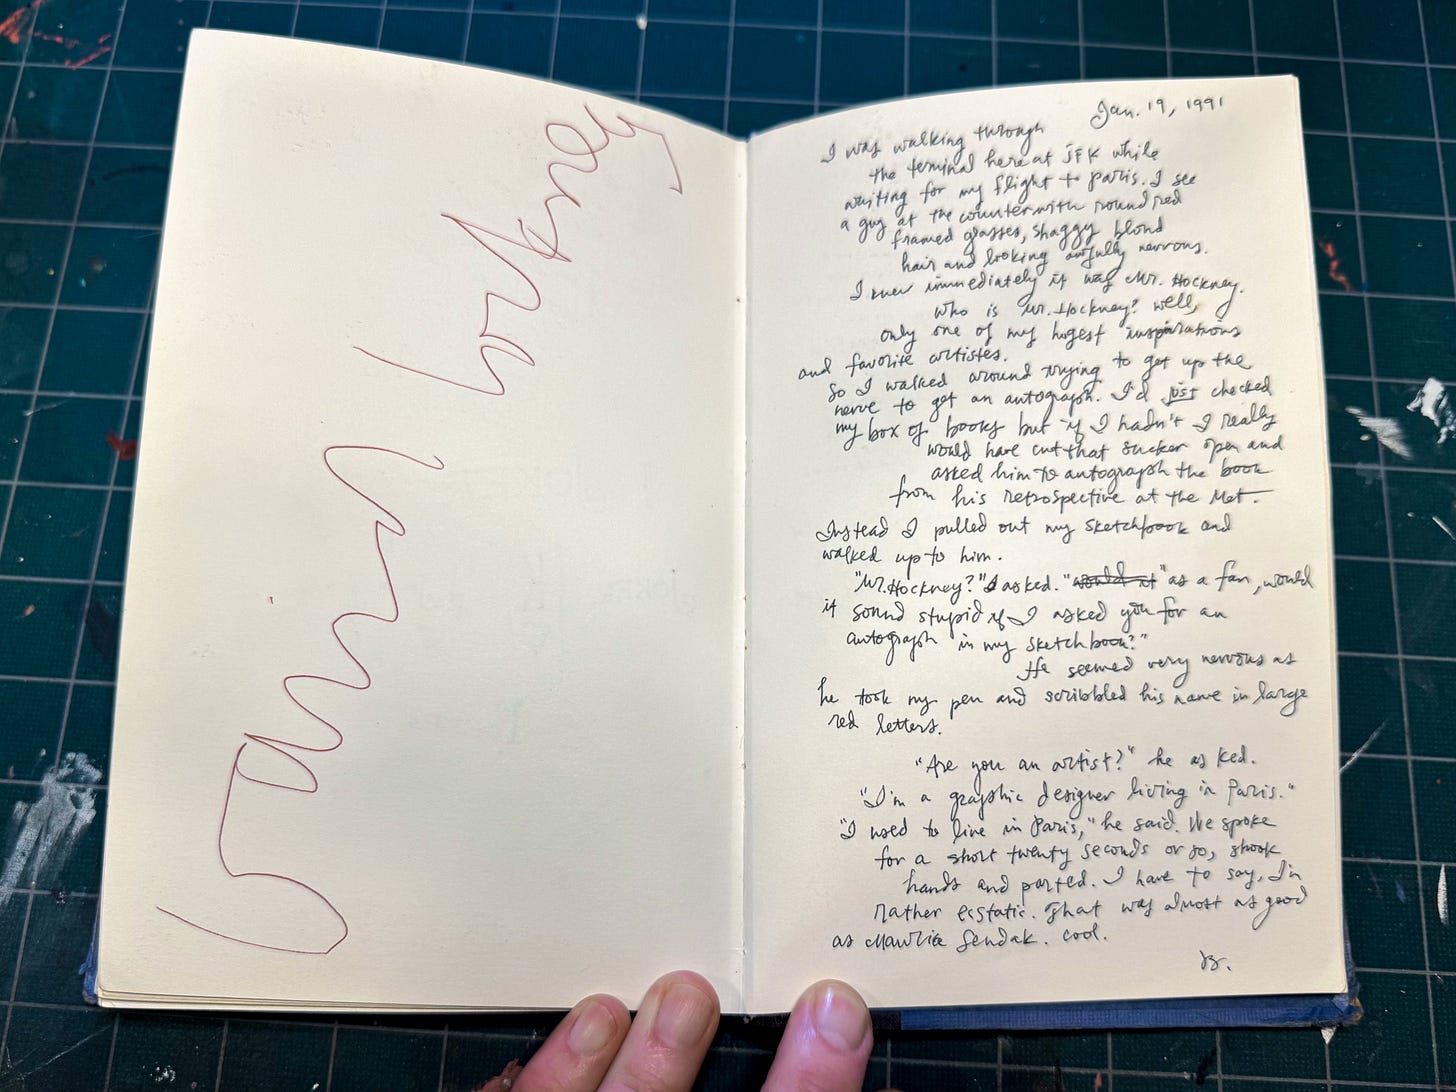 David Hockney
Jan. 19, 1991
I was walking through
the terminal here at JFK while
waiting for my flight to Paris. I see
a guy at the counter with round red
framed glasses, shaggy blond
hair and looking awfully nervous.
I knew immediately it was Mr. Hockney.
Who is Mr. Hockney? Well,
only one of my hugest inspirations
and favorite artistes.
So I walked around trying to get up the
nerve to get an autograph. I'd just checked
my box of books but if I hadn't I really
would have cut that sucker open and
asked him to autograph the book
from his retrospective at the Met.
Instead I pulled out my sketchbook and
walked up to him.
"Mr. Hockney?" I asked. "would it" "as a fan, would
it sound stupid if I asked you for an
autograph in my sketchbook?"
He seemed very nervous as
he took my pen and scribbled his name in large
red letters.
"Are you an artist?" he asked.
"I'm a graphic designer living in Paris."
"I used to live in Paris," he said. We spoke
for a short twenty seconds or so, shook
hands and parted. I have to say, I'm
rather ecstatic. That was almost as good
as Maurice Sendak. Cool.